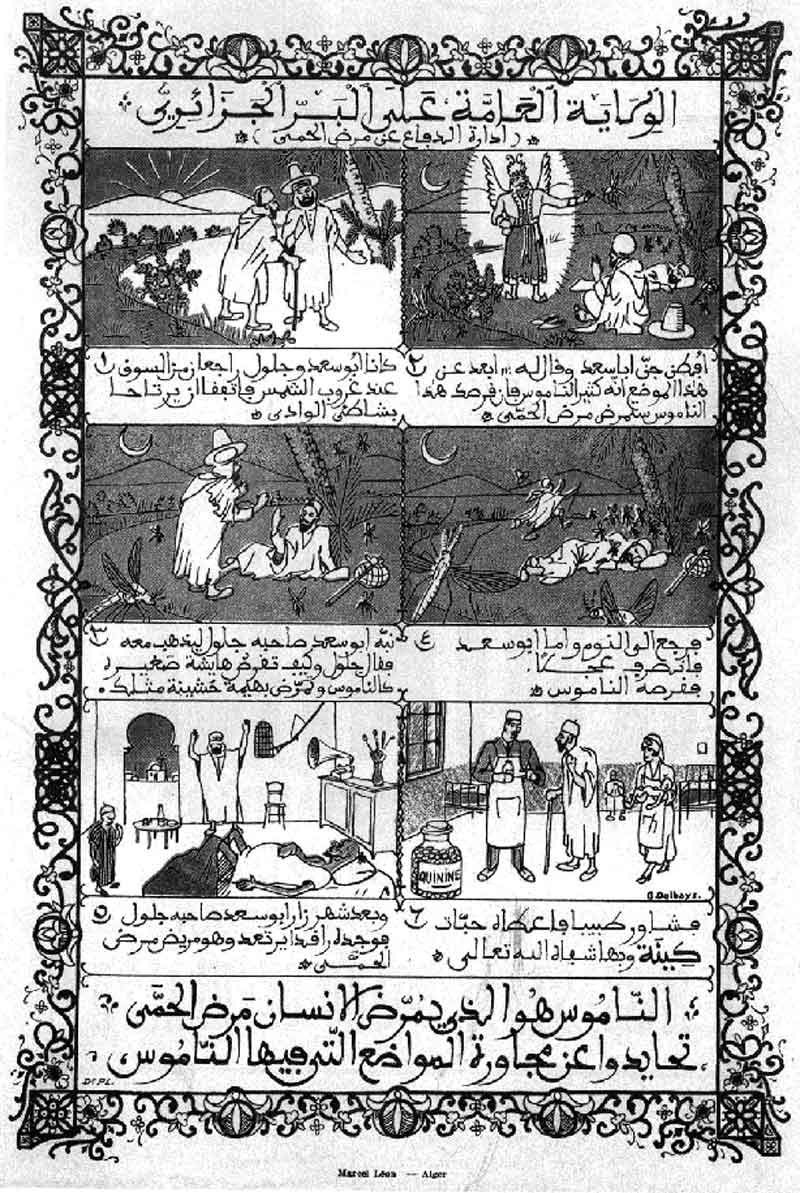 الولاية العامّة على البرّ الجزائري
(إدارة الدفاع عن مرض الحمّى)
١ كانا ابو سعد و جلول راجعان من السوق
عند غروب الشمس فاتفقا ان يرتاحا
بشاطئ الوادي
٢ أفطن جنّ ابا سعد و قال له ،،، ابعد عن
هذا الموضع انه كثير الناموس فان قرصك هذا
الناموس ستمرض مرض الحمّى
٣ نبّه ابو سعد صاحبه جلول ليذهب معه
فقال جلول و كيف تقرض هايشة صغيرة
كالناموس و تمرّض بهيمة خشينة مثلك
٤ فرجع الى النوم و اما ابو سعد
فانصرف عجلاً
فقرصه الناموس
٥ و بعد شهر زار ابو سعد صاحبه جلول
فوجده راقدا يرتعد و هو مريض مرض
الحمّى
QUININE
G. Dalbays.
٦ فشاور طبيبا فاعطاه حبّات
كينة و بها شفاه الله تعالى
النّاموس هو الذي يمرّض الانسان مرض الحمّى
تحايدوا عن مجاورة المواضع التي فيها النّاموس
DIPL.
Marcel Léon — Alger